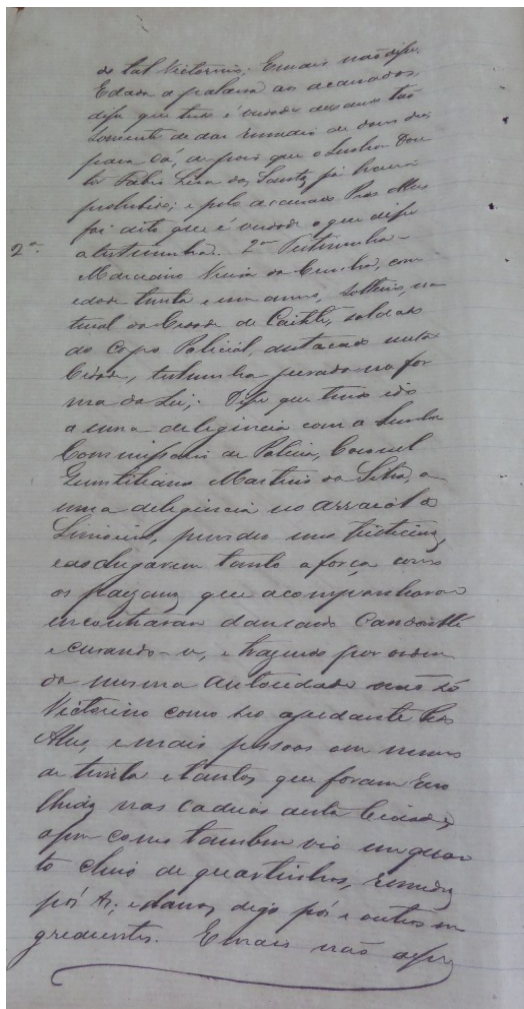 do tal Victorino; E mais não disse
E dada a palavra ao accusados
disse que tudo é verdade
somente de dar remedio de
para cá, depois que o Senhor Dou
tor Fabio Lira dos Santos foi
prohibido; e pelo accusado
foi dito que é verdade o que disse
2ª. a testimunha. 2ª Testimunha
Marciano Vieira da Cunha, com
edade trinta e um annos, solteiro, na
tural da Cidade de Caitité, soldado
do Corpo Policial, destacado nesta
Cidade, testimunha jurada na for
ma da Lei; Disse que tendo ido
a uma deligencia com o Senhor
Commissario de Policia, Coronel
Quintiliano Martins da Silva, a
uma deligencia no arraial de
prender uns
e ao chegarem tanto a força como
os paizanos que acompanharam
encontraram dançando Candomblé
e curando-se, e trazendo por ordem
da mesma autoridade não só
Victorino como seo ajudante
e mais pessoas em numero
de trinta e tantas que foram reco
lhidas nas cadeias desta Cidade,
assim como tambem vio um quar
to cheio de quartinhas, remedios
pós digo pós e outros in
gredientes. E mais não disse